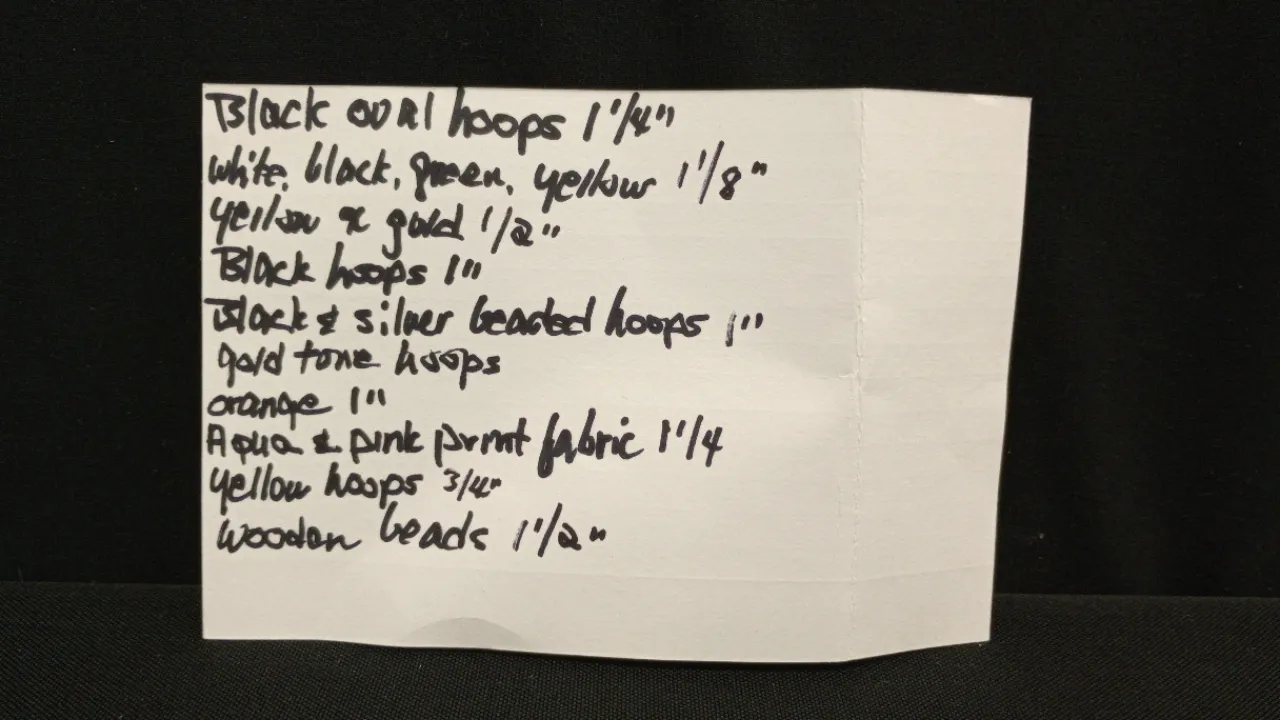 Black oval hoops 1 1/4"
white, black, green, yellow 1 1/8"
yellow & gold 1/2"
Black hoops 1"
Black & silver beaded hoops 1"
gold tone hoops
orange 1"
Aqua & pink print fabric 1 1/4
yellow hoops 3/4"
wooden beads 1 1/2"